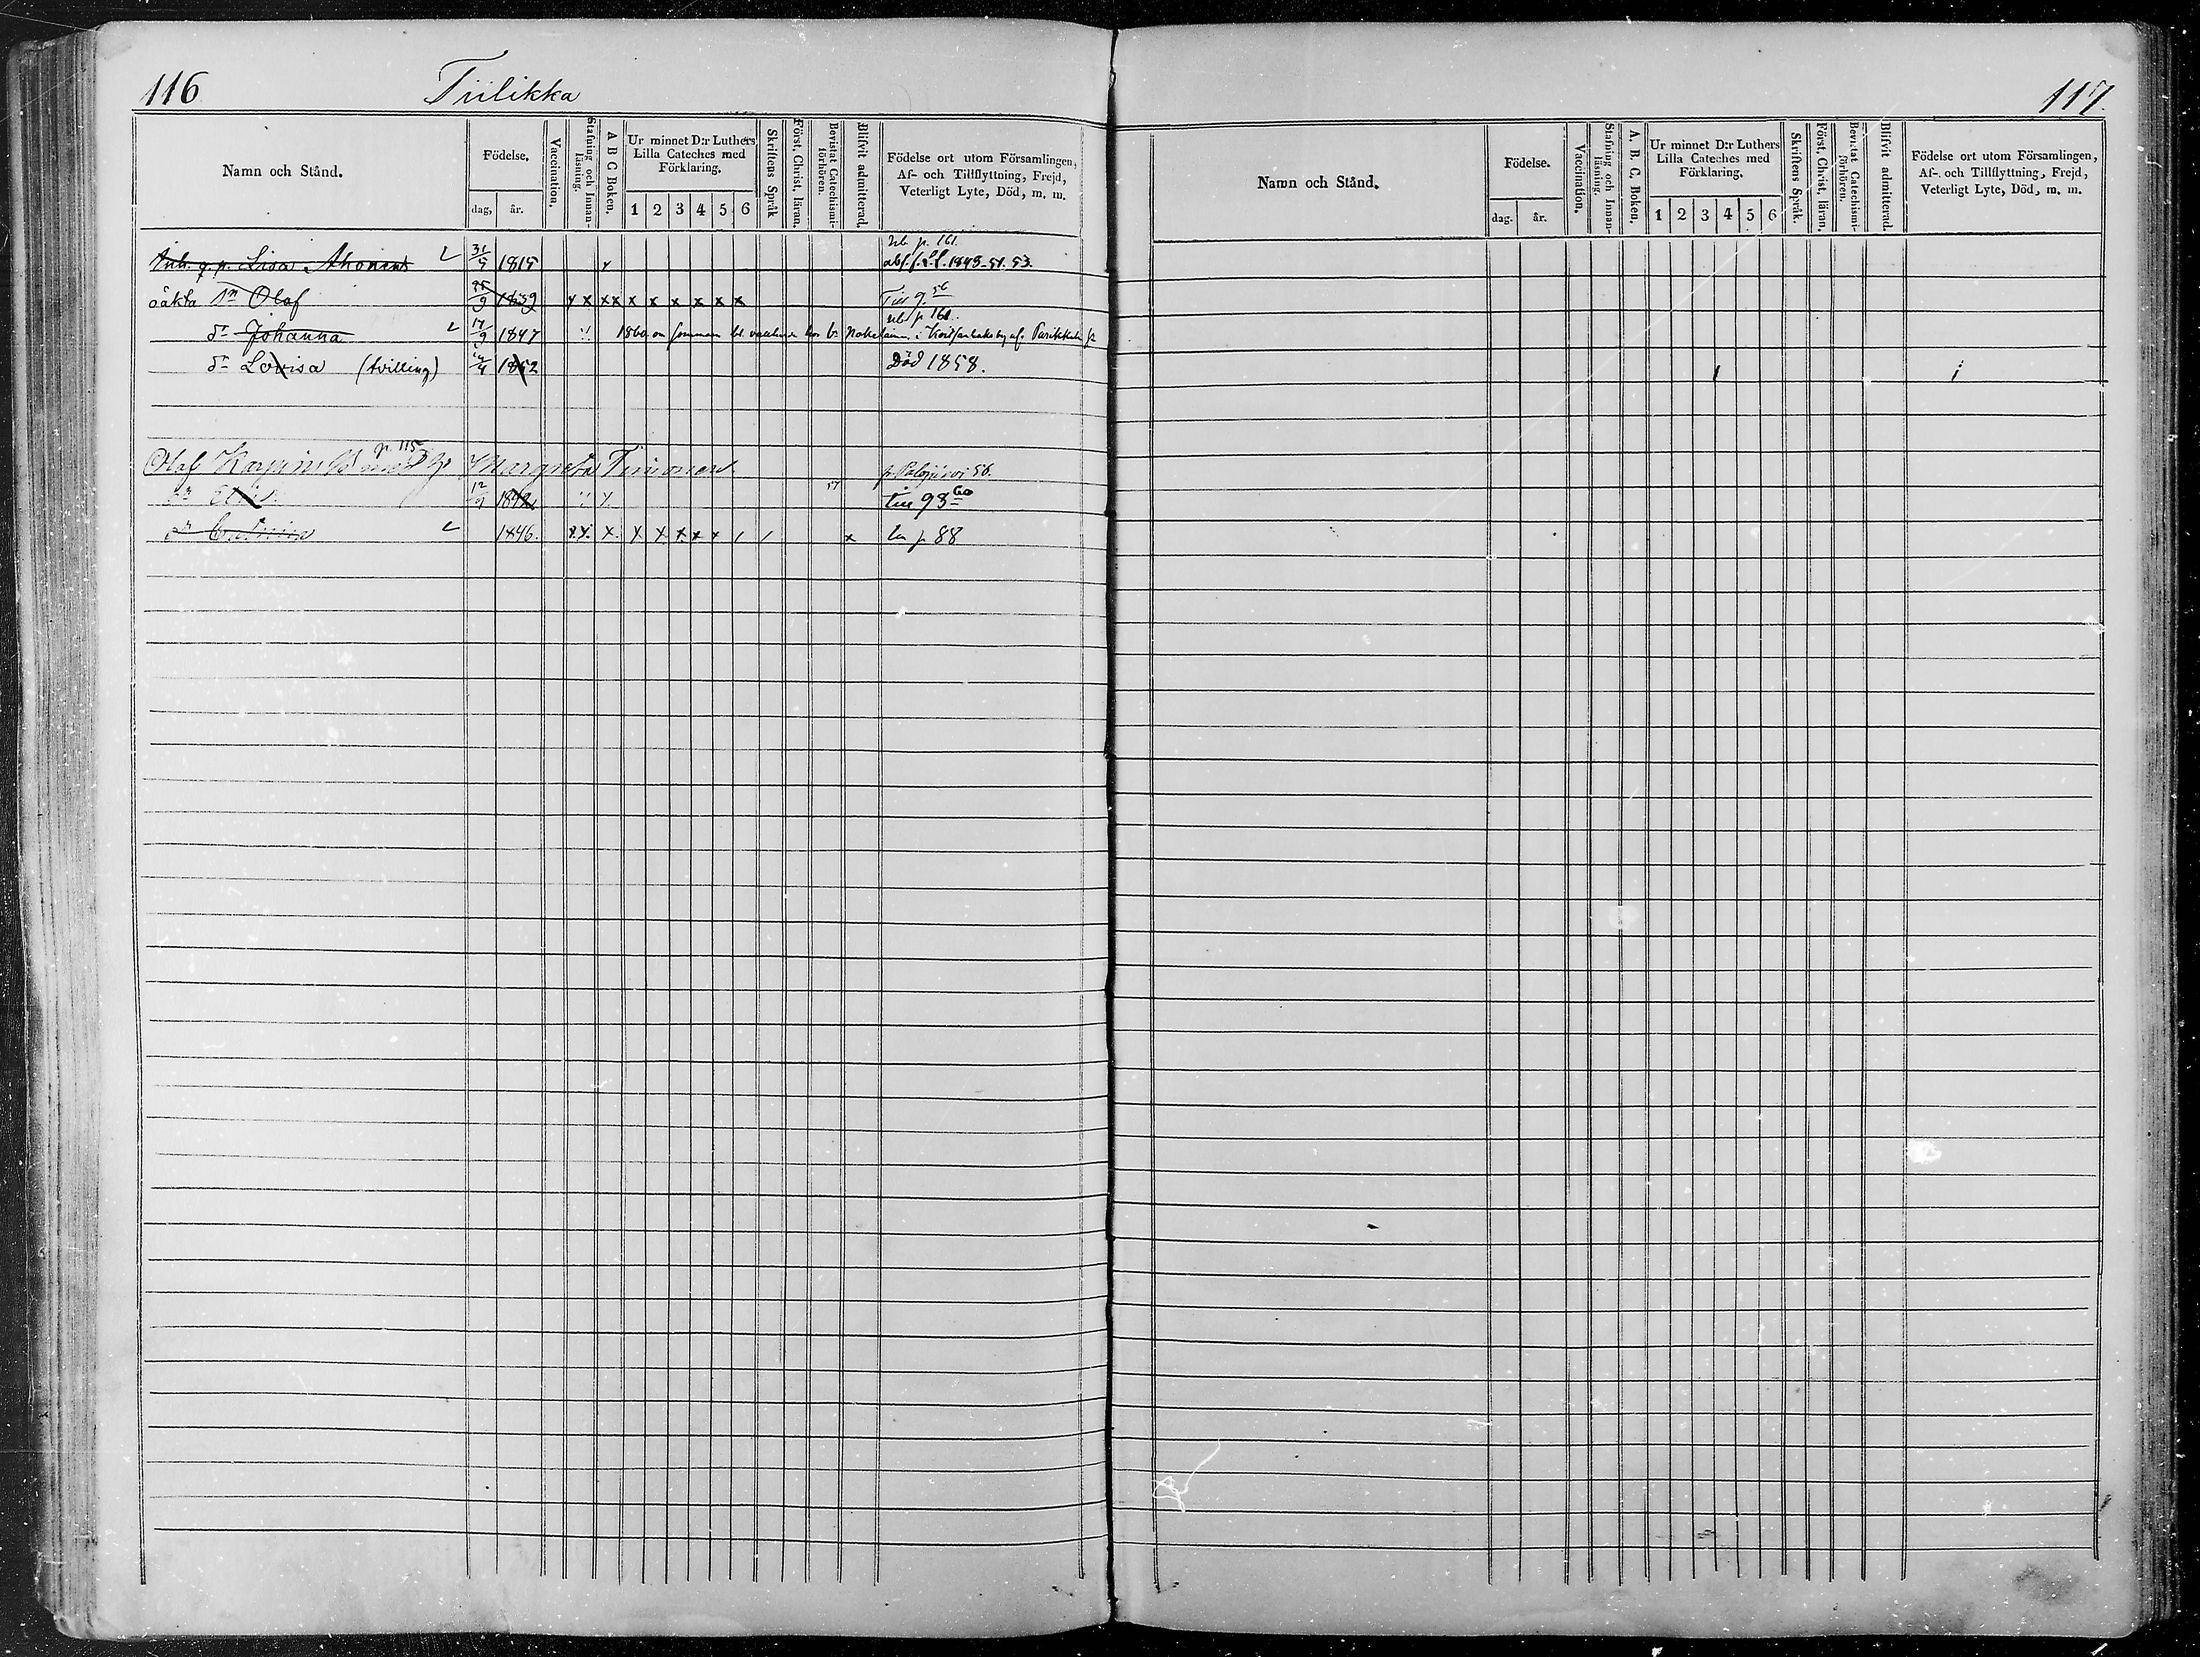 116 Tiilikka
Namn och Stånd. Födelse, dag, år. Vaccination. Stafning och Innan-läsning. A B C Boken. Ur minnet D:r Luthers Lilla Cateches med Förklaring. 1 2 3 4 5 6 Skriftens Språk Förest. Christ. läran. Bevistat Catechismi-förhören. Blifvit admitterad. Födelse ort utom Församlingen, Af- och Tillflyttning, Frejd, Veterligt Lyte, Död, m. m.
p. 161.
Lisa Ahonen 31/5 1815 1848. 51. 53.
oäkta Sn Olof 9 1839 x x x x x x x x x x Till 9. 56
p 161.
dr Johanna 17/9 1847 1860 i af Parikkala
dr Lovisa (tvilling) 4 1852 Död 1858.
p. 115
Olof Karppinen Margreta Timonen 56.
12 57 till 98 60
dr Catrina 1846. x x x x x x p 88
117.
Namn och Stånd. Födelse. dag. år. Vaccination. Stafning och Innan-läsning. A. B. C. Boken. Ur minnet D:r Luthers Lilla Cateches med Förklaring. 1 2 3 4 5 6 Skriftens Språk. Förest. Christ. läran. Bevistat Catechismi-förhören. Blifvit admitterad. Födelse ort utom Församlingen, Af-. och Tillflyttning, Frejd, Veterligt Lyte, Död, m. m.